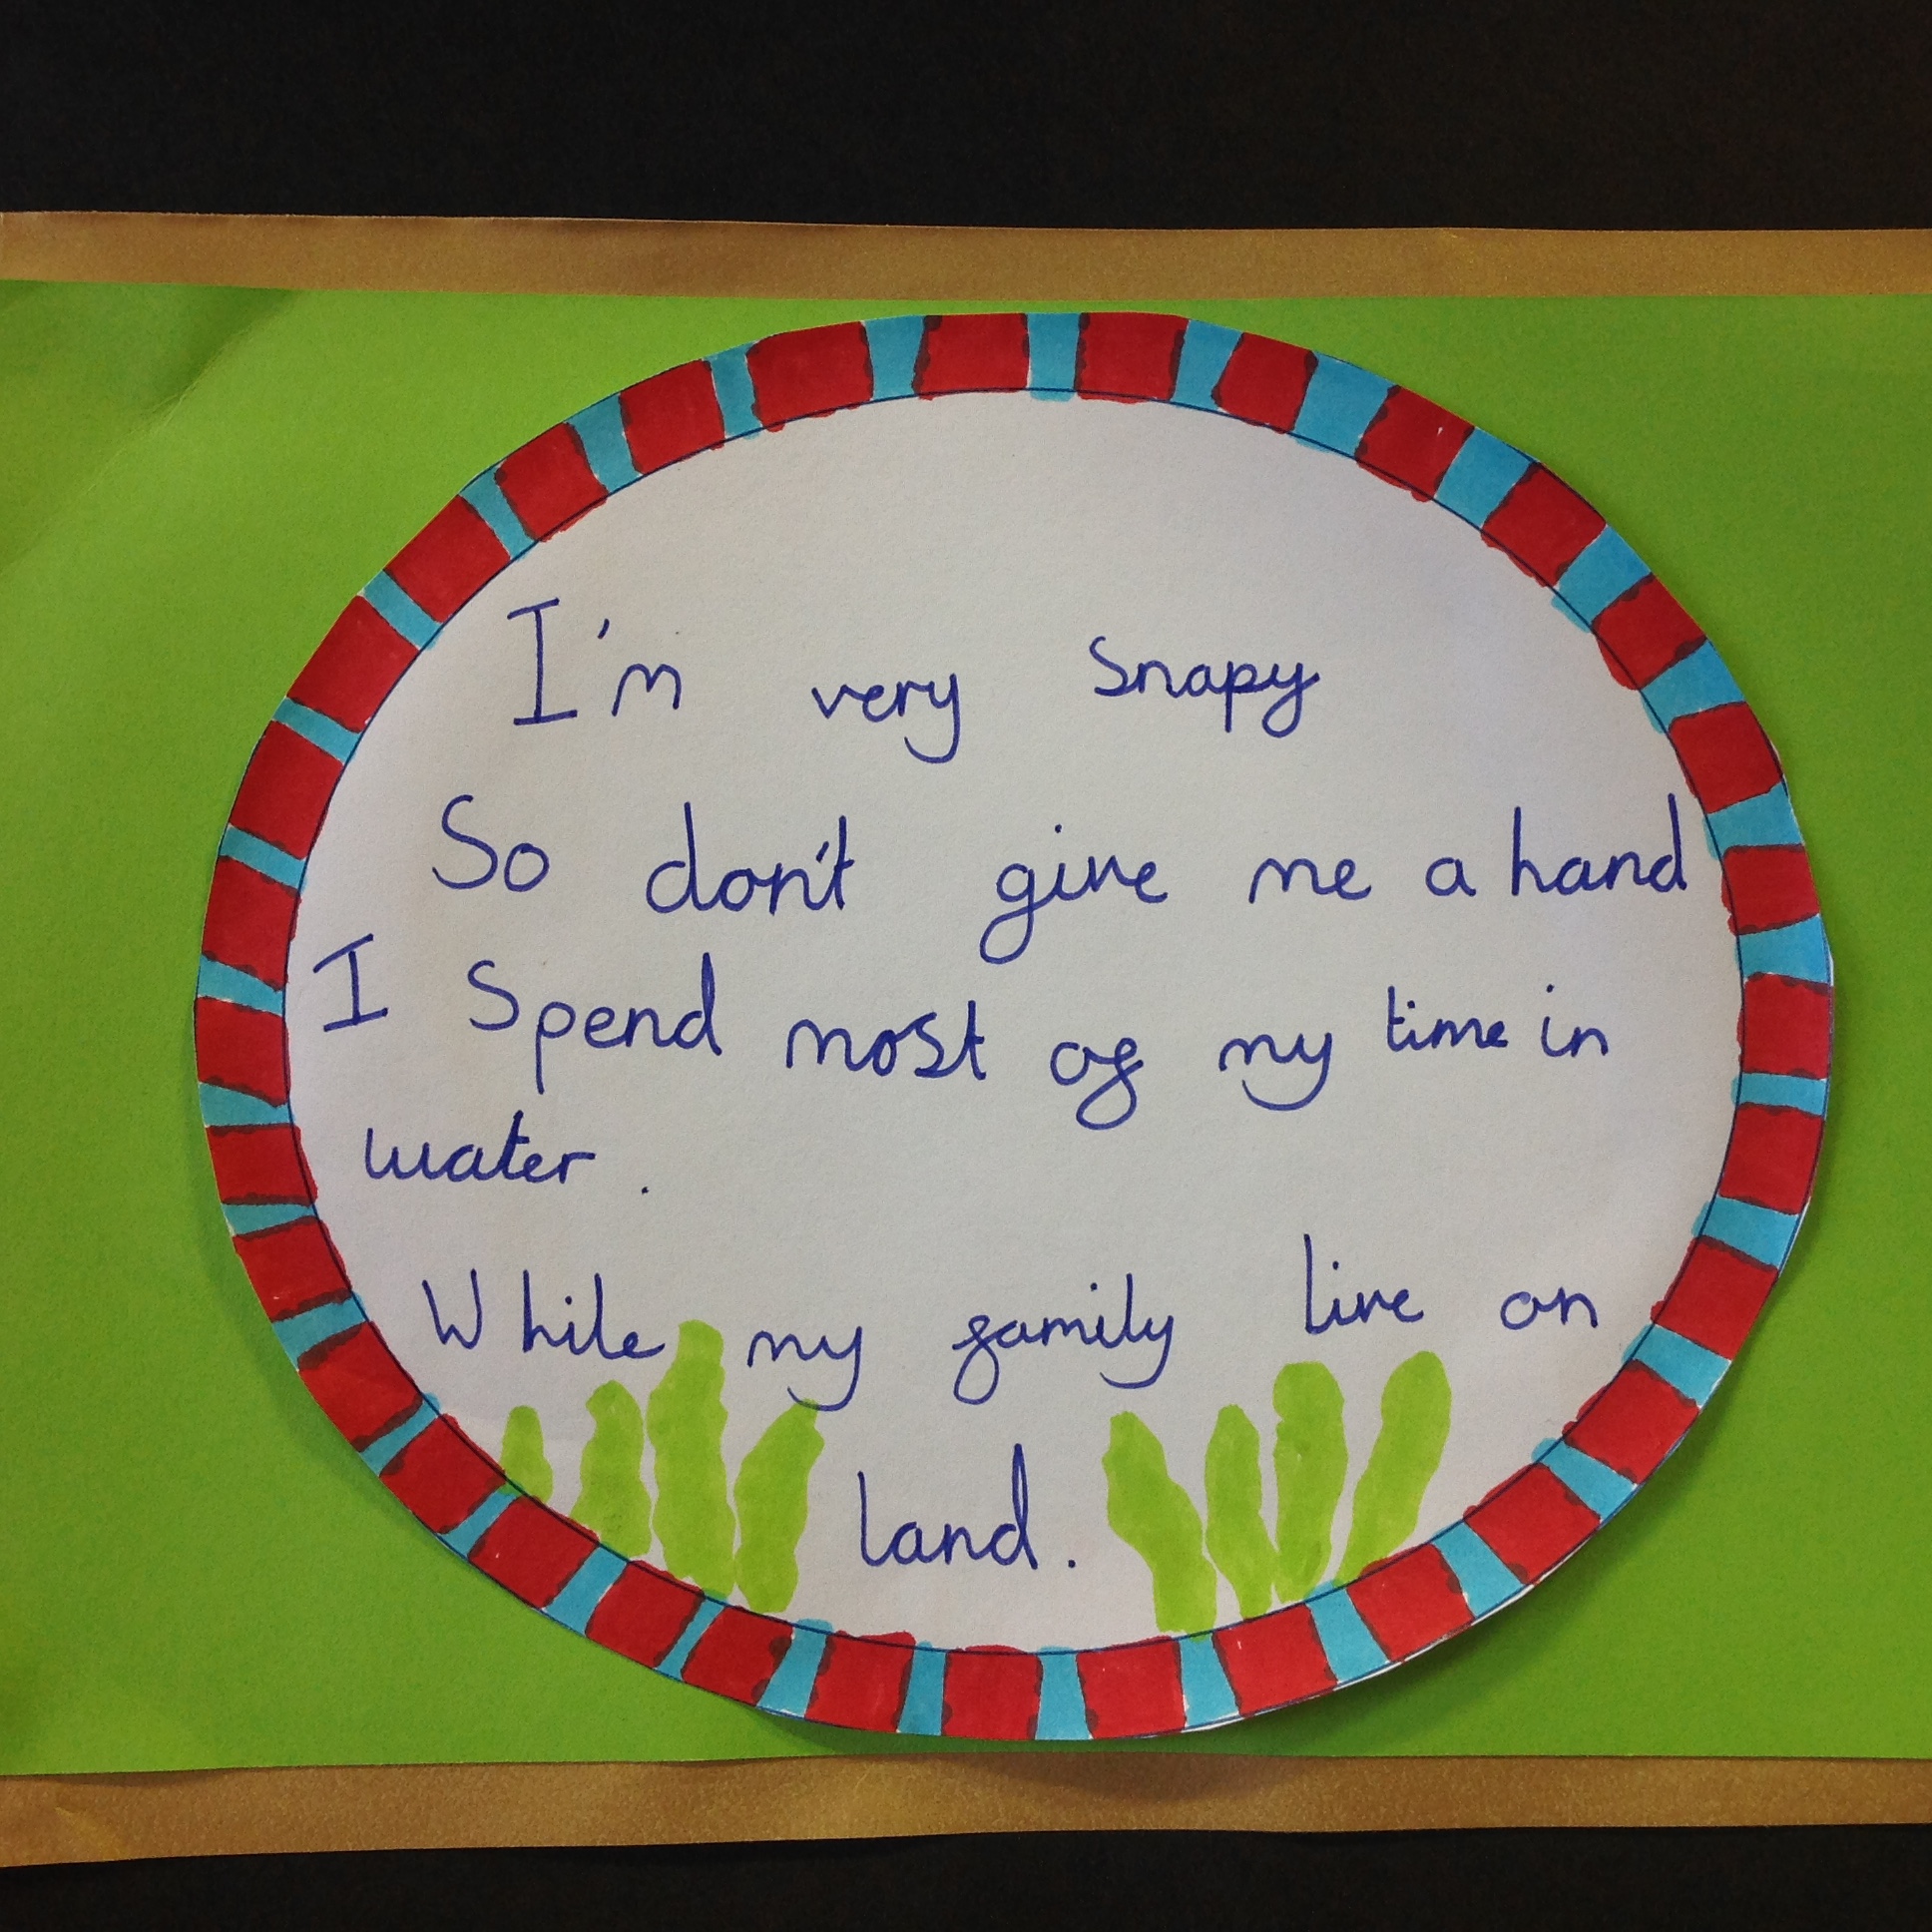 I'm very Snapy
So don't give me a hand
I Spend most of my time in
water.
While my family live on
land.